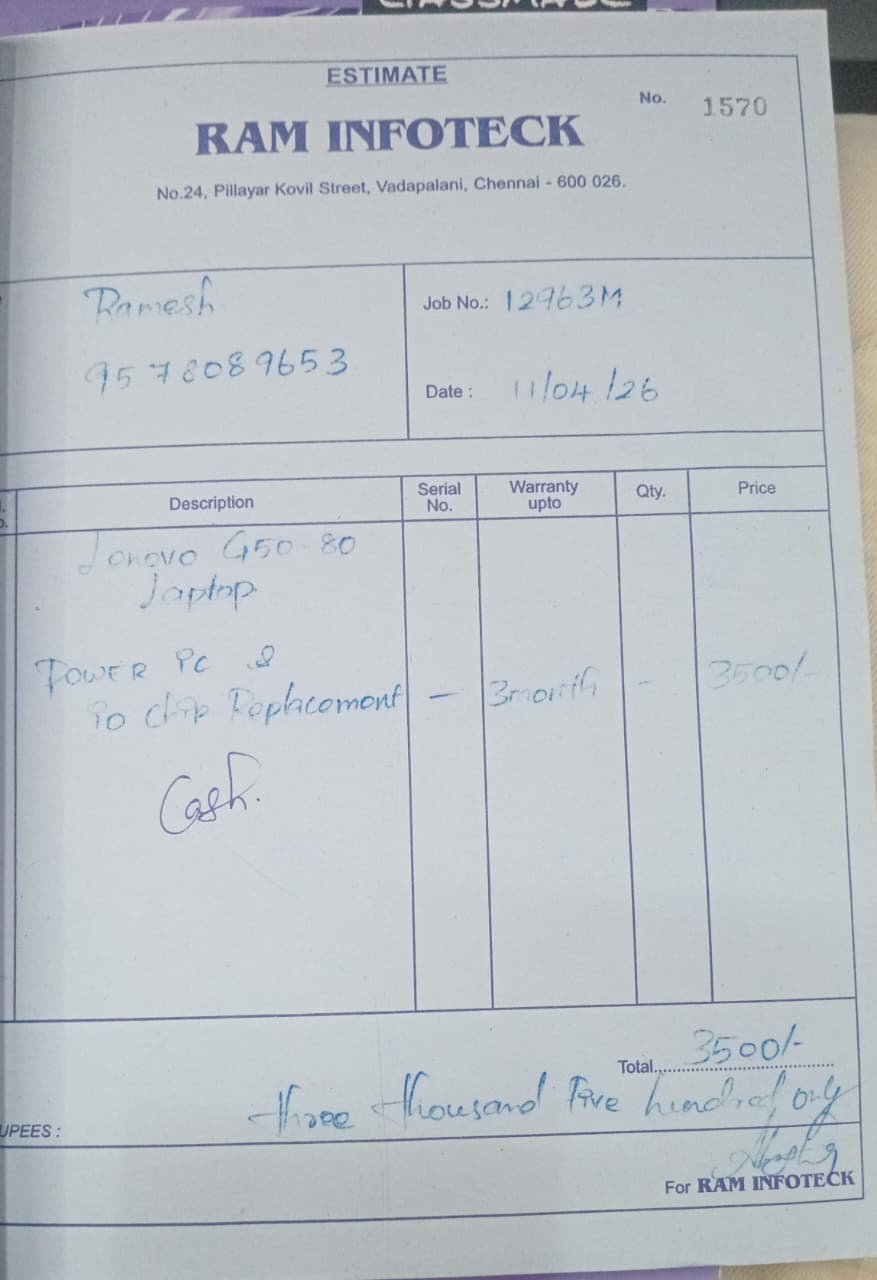 ESTIMATE
No. 1570
RAM INFOTECK
No.24, Pillayar Kovil Street, Vadapalani, Chennai - 600 026.
Ramesh
Job No.: 12963M
9578089653
Date : 11/04/26
Description Serial No. Warranty upto Qty. Price
Lenovo G50-80
Laptop
POWER IC &
IO Chip Replacement - 3month - 3500/-
Cash.
Total 3500/-
UPEES : three thousand Five hundred only
For RAM INFOTECK